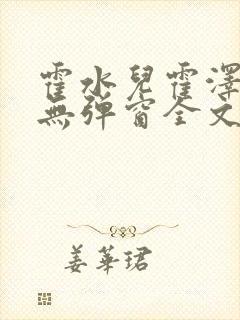 霍水兒霍澤
無彈窗全文
姜華珺